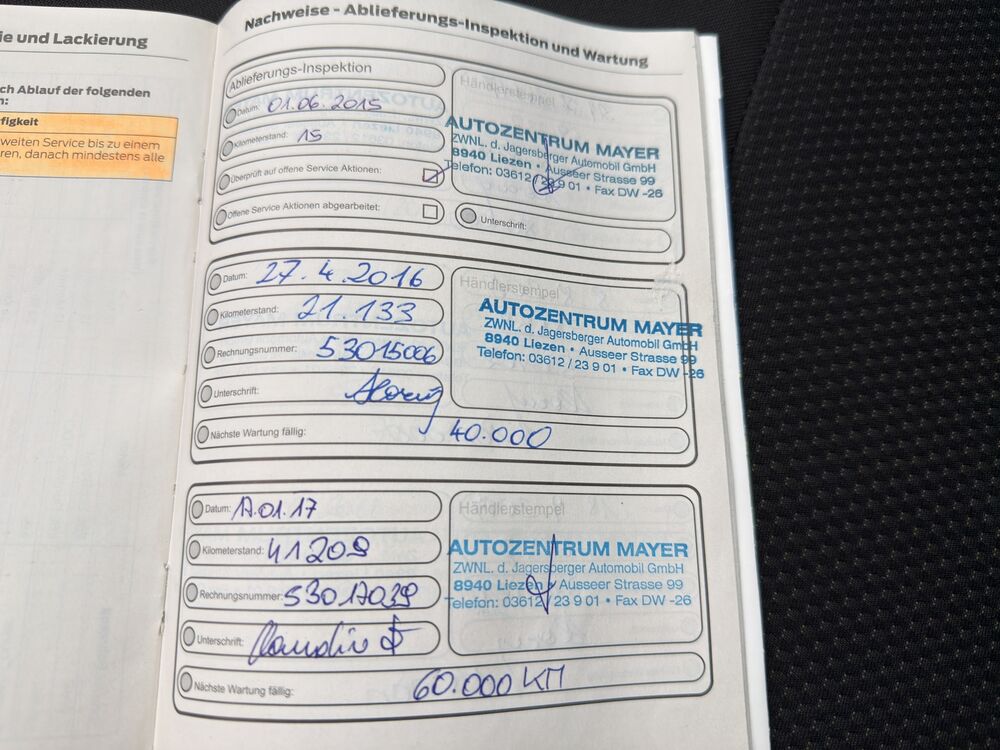 ie und Lackierung
ch Ablauf der folgenden
n:
figkeit
weiten Service bis zu einem
ren, danach mindestens alle
Nachweise - Ablieferungs-Inspektion und Wartung
Ablieferungs-Inspektion
Datum: 01.06.2015
Kilometerstand: 15
Überprüft auf offene Service Aktionen:
Offene Service Aktionen abgearbeitet:
Händlerstempel
AUTOZENTRUM MAYER
ZWNL. d. Jagersberger Automobil GmbH
8940 Liezen • Ausseer Strasse 99
Telefon: 03612 / 23 9 01 • Fax DW -26
Unterschrift:
Datum: 27.4.2016
Kilometerstand: 21.133
Rechnungsnummer: 53015006
Unterschrift:
Nächste Wartung fällig: 40.000
Händlerstempel
AUTOZENTRUM MAYER
ZWNL. d. Jagersberger Automobil GmbH
8940 Liezen • Ausseer Strasse 99
Telefon: 03612 / 23 9 01 • Fax DW -26
Datum: 17.01.17
Kilometerstand: 41209
Rechnungsnummer: 53017039
Unterschrift:
Nächste Wartung fällig: 60.000 KM
Händlerstempel
AUTOZENTRUM MAYER
ZWNL. d. Jagersberger Automobil GmbH
8940 Liezen • Ausseer Strasse 99
Telefon: 03612 / 23 9 01 • Fax DW -26